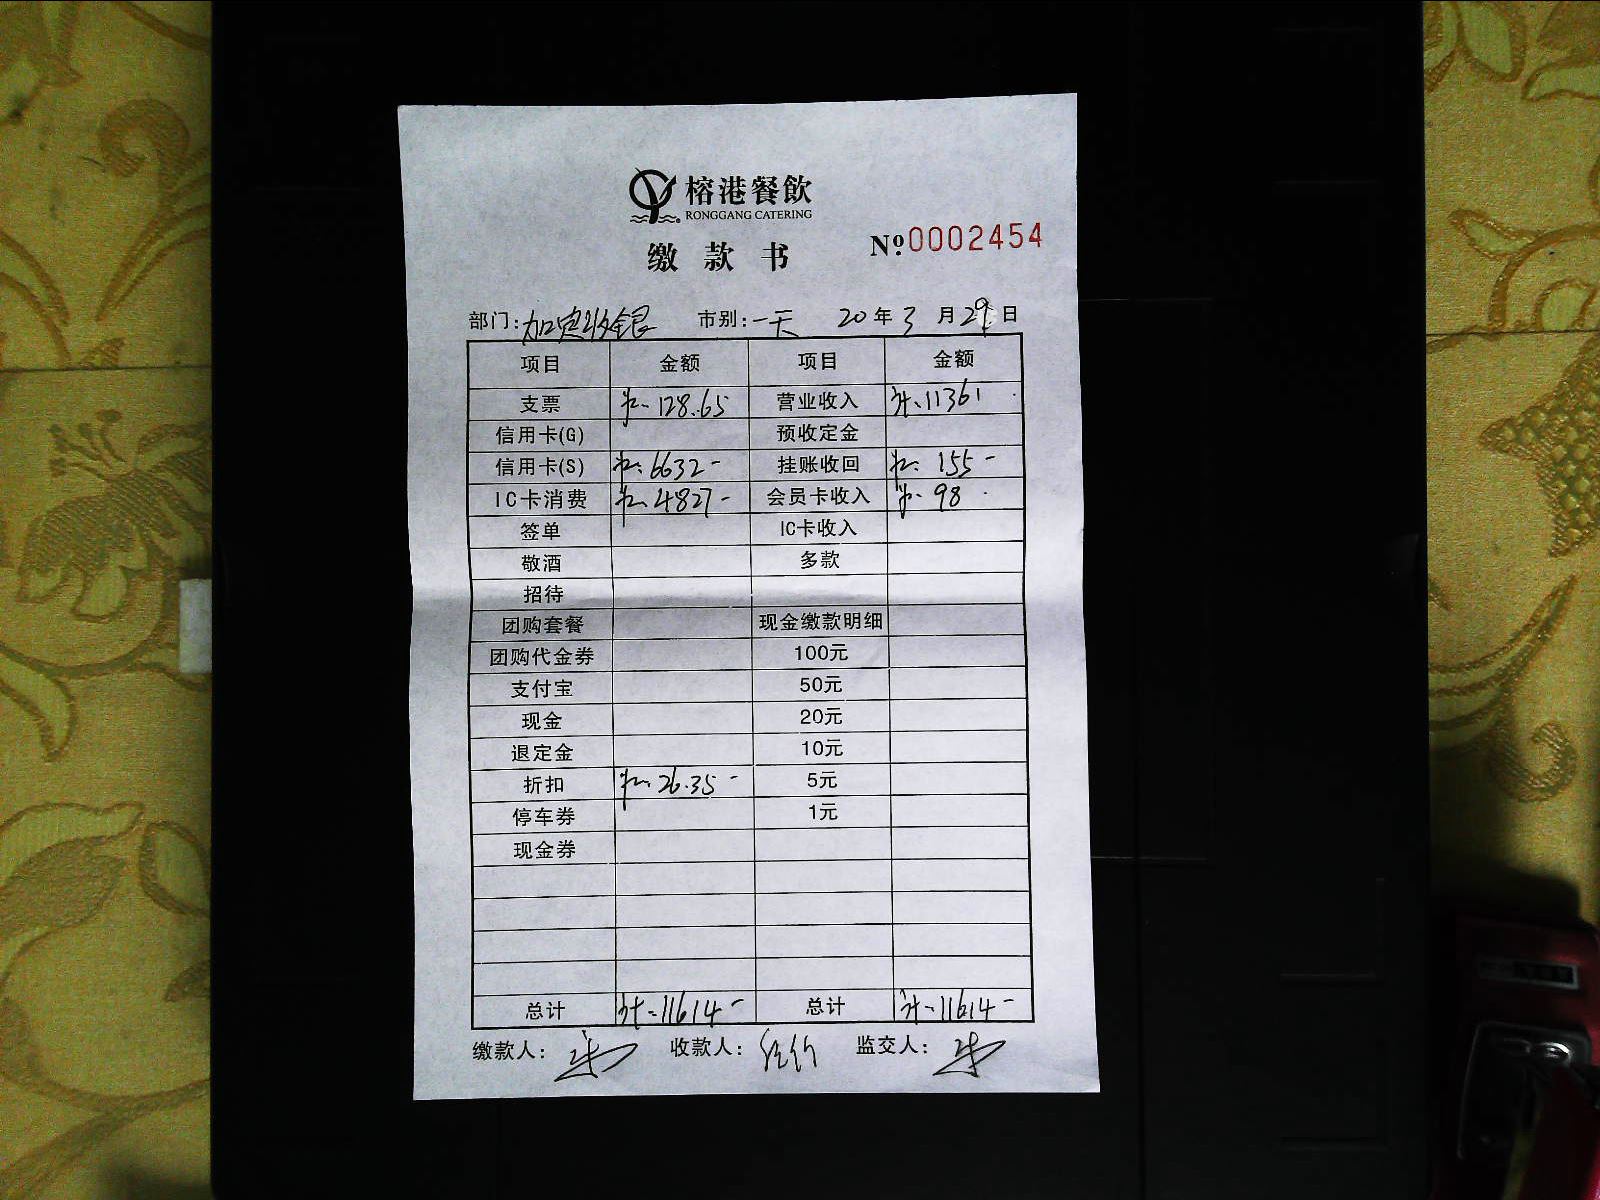 榕港餐飲
RONGGANG CATERING
缴款书 Nº 0002454
部门:加定收银 市别:一天 20年3月29日
项目 金额 项目 金额
支票 128.65 营业收入 11361
信用卡(G) 预收定金
信用卡(S) 6632- 挂账收回 155-
IC卡消费 4827- 会员卡收入 98
签单 IC卡收入
敬酒 多款
招待
团购套餐 现金缴款明细
团购代金券 100元
支付宝 50元
现金 20元
退定金 10元
折扣 26.35- 5元
停车券 1元
现金券
总计 11614- 总计 11614-
缴款人: 收款人: 监交人: